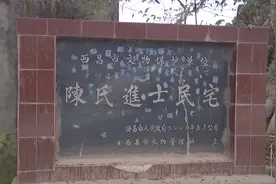 西昌市文物保护单位
陳氏進士民宅
西昌市人民政府二〇〇六年五月公布
西昌市文物管理所 立